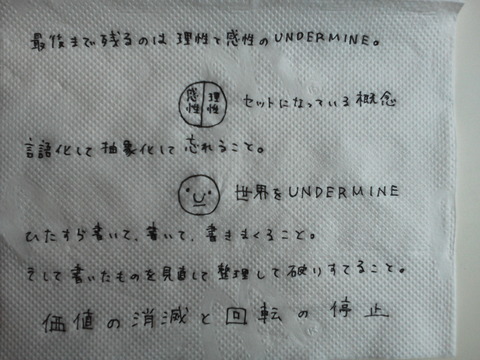 最後まで残るのは理性と感性のUNDERMINE。
感性 理性 セットになっている概念
言語化して抽象化して忘れること。
世界をUNDERMINE
ひたすら書いて、書いて、書きまくること。
そして書いたものを見直して整理して破りすてること。
価値の消滅と回転の停止